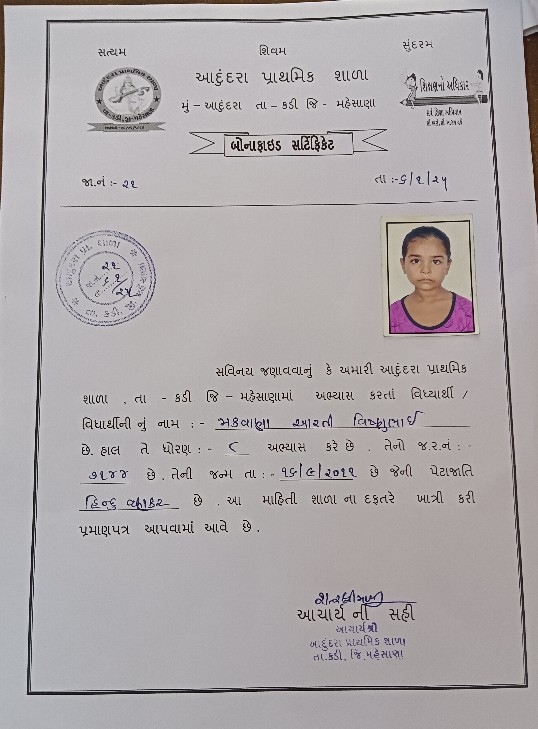 સત્યમ શિવમ સુંદરમ
આદુંદરા પ્રાથમિક શાળા
શિક્ષણનો અધિકાર
મું - આદુંદરા તા - કડી જિ - મહેસાણા
બોનાફાઇડ સર્ટિફિકેટ
જા.નં :- ૨૧ તા :- ૬/૧/૨૫
આદુંદરા પ્રા. શાળા
૨૧
૬/૧/૨૫
તા. કડી.
સવિનય જણાવવાનું કે અમારી આદુંદરા પ્રાથમિક
શાળા , તા - કડી જિ - મહેસાણામાં અભ્યાસ કરતાં વિધ્યાર્થી /
વિધાર્થીની નું નામ : - મકવાણા આરતી વિષ્ણુભાઈ
છે. હાલ તે ધોરણ : - ૮ અભ્યાસ કરે છે . તેનો જ.ર.નં : -
૭૧૪૪ છે . તેની જન્મ તા : - ૧૬/૯/૨૦૧૧ છે જેની પેટાજાતિ
હિન્દુ વણકર છે . આ માહિતી શાળા ના દફતરે ખાત્રી કરી
પ્રમાણપત્ર આપવામાં આવે છે .
આચાર્ય ની સહી
આચાર્યશ્રી
આદુંદરા પ્રાથમિક શાળા
તા.કડી, જિ.મહેસાણા